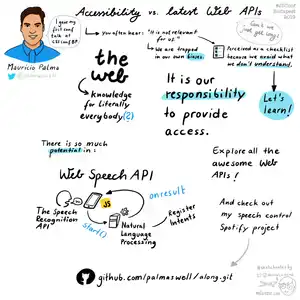 Accessibility vs. latest Web APIs
I gave
my first conf
talk at
Mauricio Palma
you often hear:
"It is not relevant
for us."
We are trapped
in our own biases.
Can't we
not get
Perceived as a checklist
because we avoid what
we don't understand.
the
web
=
Knowledge
for literally
everybody(?)
It is our
responsibility
to provide
access.
Let's
learn!
There is so much
potential in:
Web Speech API
The Speech
Recognition
API
JS
start()
onresult
Natural
Language
Processing
Register
Intents
Explore all the
awesome Web
APIs!
And check out
my speech control
Spotify project
github.com/palmaswell/along.git